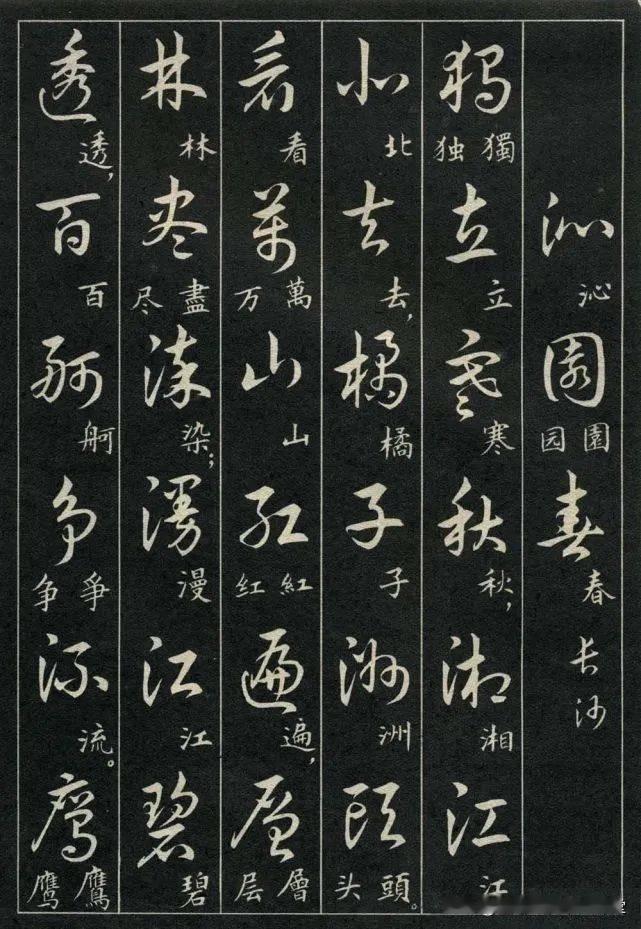 沁 沁 園 園 园 春 春 长沙
獨 獨 独 立 立 寒 寒 秋 秋， 湘 湘 江 江
北 北 去 去， 橘 橘 子 子 洲 洲 頭 頭 头。
看 看 萬 萬 万 山 山 紅 紅 红 遍 遍， 層 層 层
林 林 盡 盡 尽 染 染； 漫 漫 江 江 碧 碧
透 透， 百 百 舸 舸 爭 爭 争 流 流。 鷹 鷹 鹰